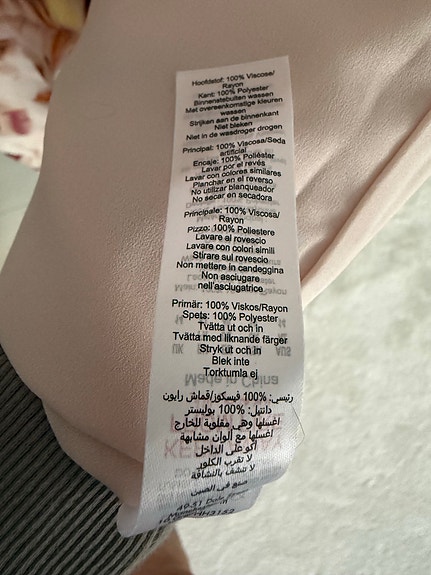 Hoofdstof: 100% Viscose/
Rayon
Kant: 100% Polyester
Binnenstebuiten wassen
Met overeenkomstige kleuren
wassen
Strijken aan de binnenkant
Niet bleken
Niet in de wasdroger drogen
Principal: 100% Viscosa/Seda
artificial
Encaje: 100% Poliéster
Lavar por el revés
Lavar con colores similares
Planchar en el reverso
No utilizar blanqueador
No secar en secadora
Principale: 100% Viscosa/
Rayon
Pizzo: 100% Poliestere
Lavare al rovescio
Lavare con colori simili
Stirare sul rovescio
Non mettere in candeggina
Non asciugare
nell'asciugatrice
Primär: 100% Viskos/Rayon
Spets: 100% Polyester
Tvätta ut och in
Tvätta med liknande färger
Stryk ut och in
Blek inte
Torktumla ej
Made in China
رئيسي: 100% فيسكوز/قماش رايون
دانتيل: 100% بوليستر
اغسلها وهي مقلوبة للخارج
اغسلها مع ألوان مشابهة
اكو على الداخل
لا تقرب الكلور
لا تنشف بالنشافة
صنع في الصين